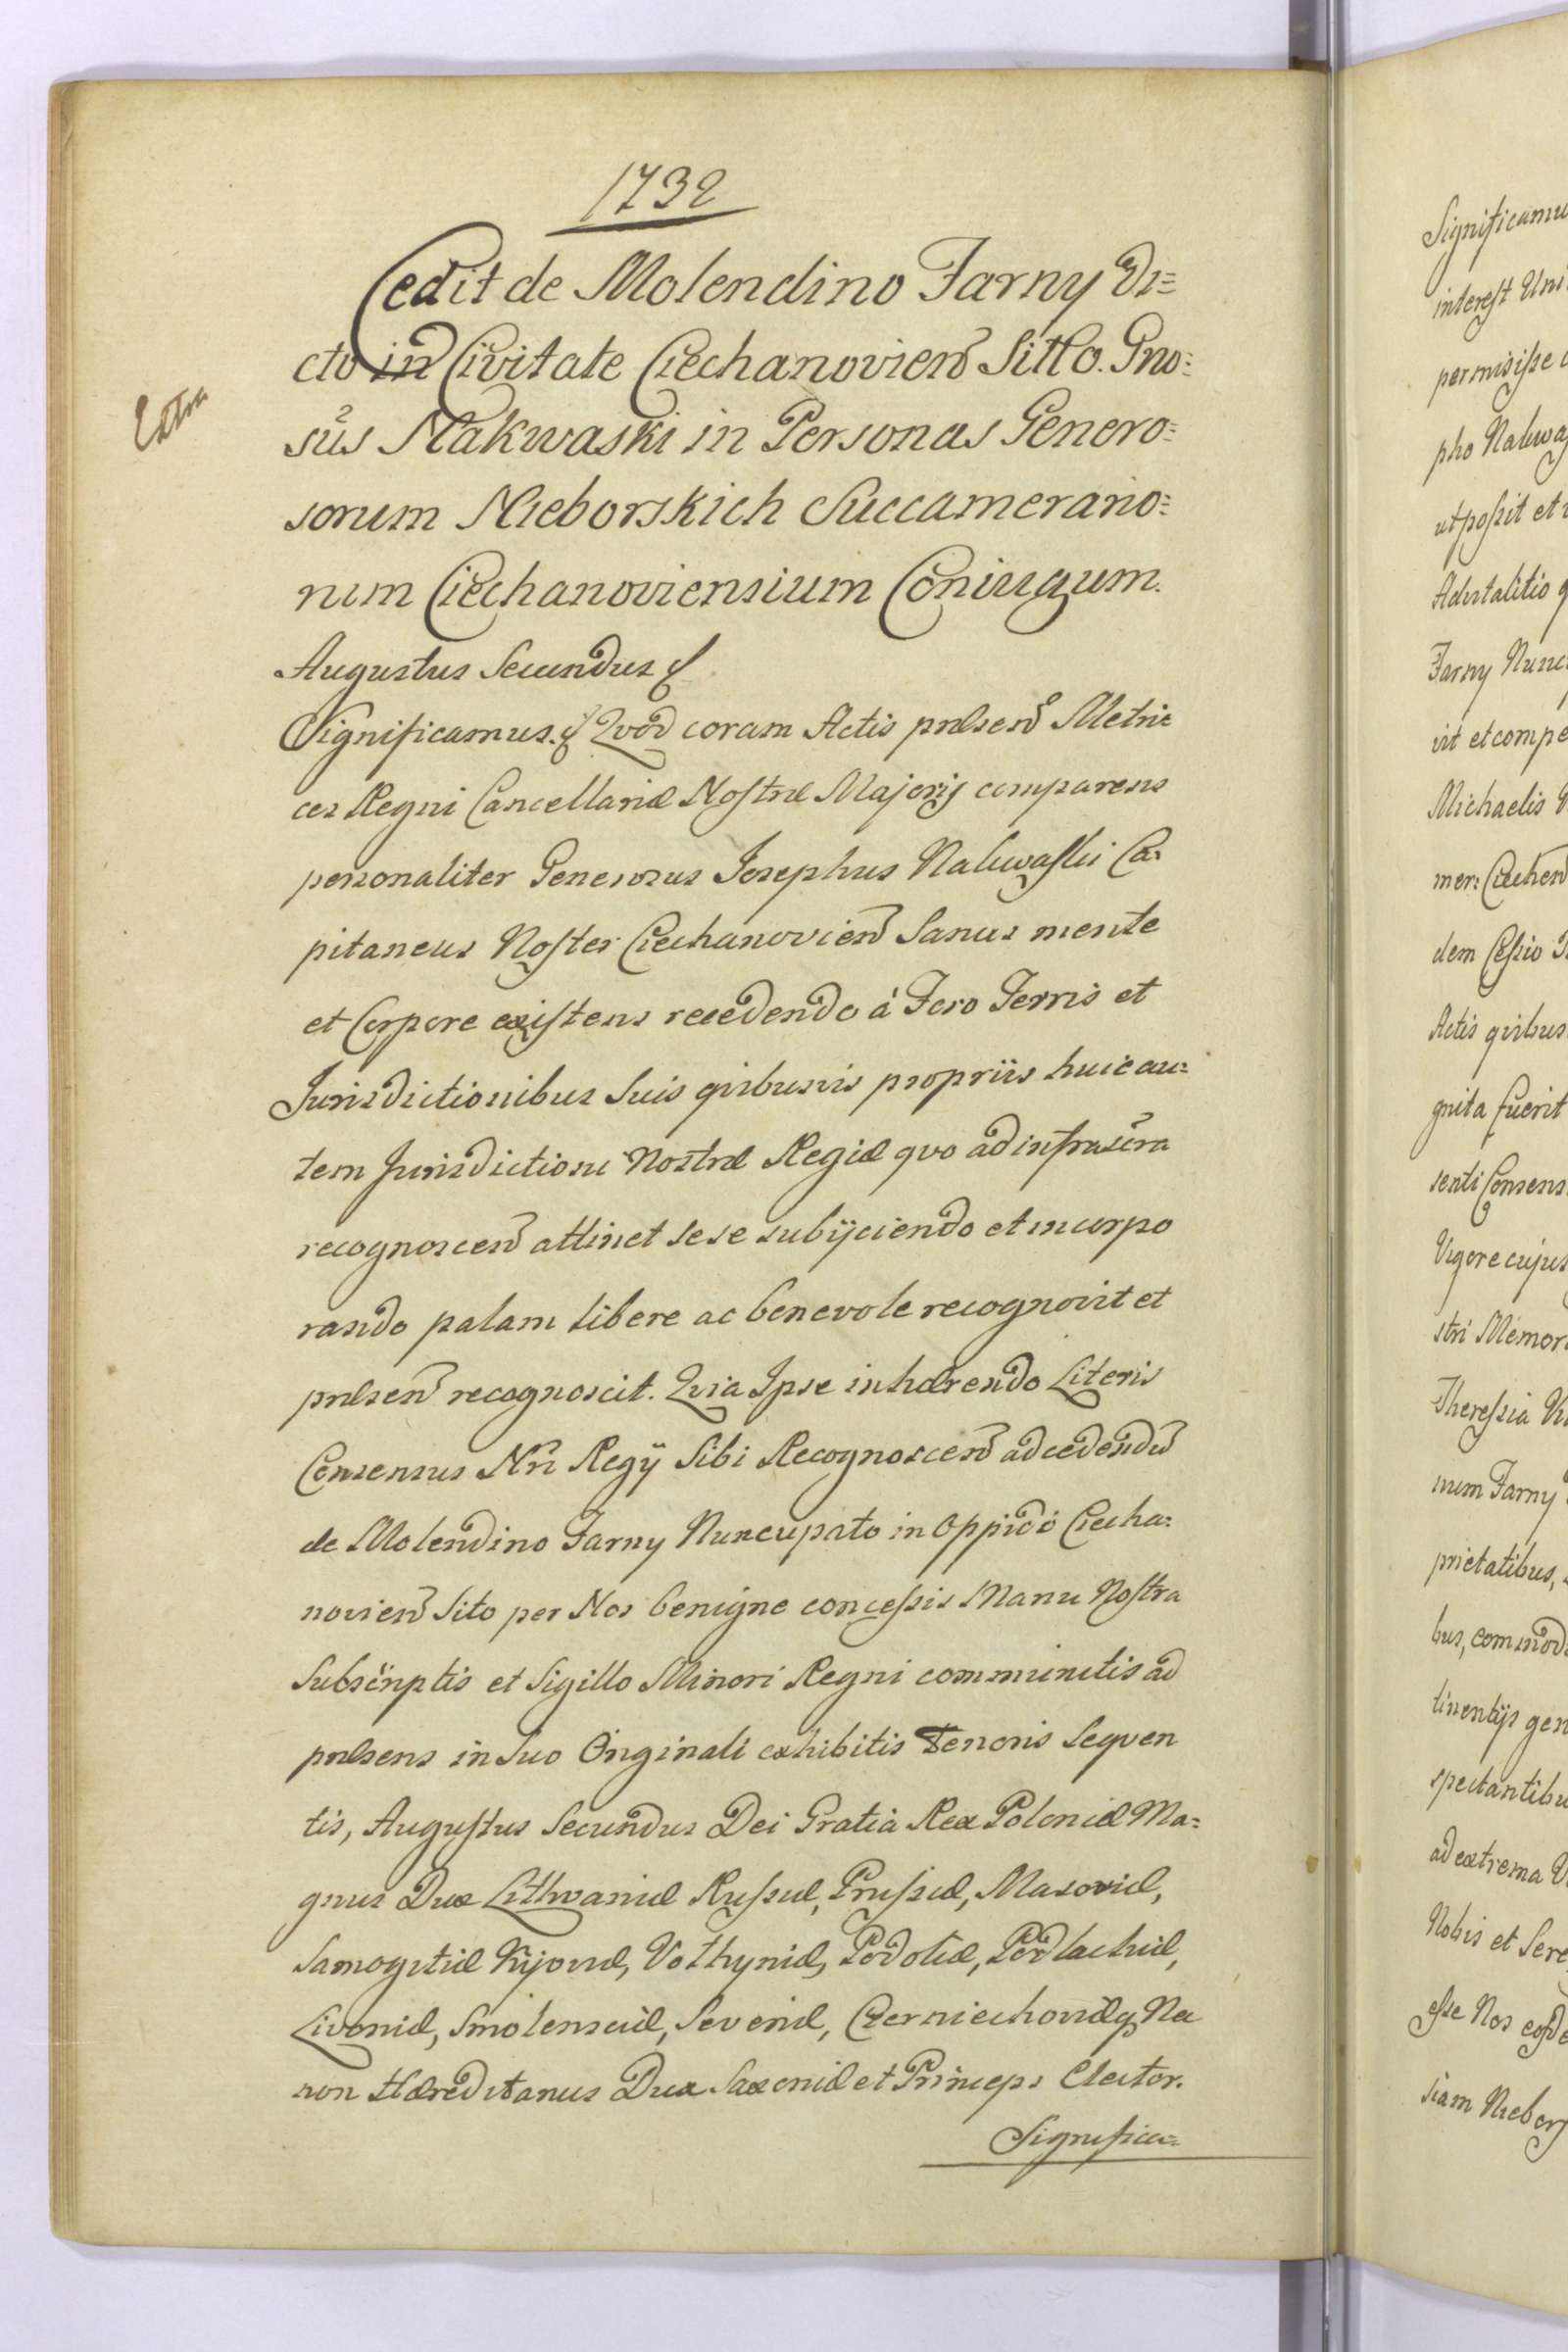 1732
Cedit de Molendino Farny Di=
cto in Civitate Ciechanovien Sitto. Gno=
Extra
sus Nakwaski in Personas Genero=
sorum Nieborskich Succamerario=
rum Ciechanoviensium Coniugum.
Augustus Secundus &
Significamus. & Qvod coram Actis pnlsen Metri=
ces Regni Cancellariæ Nostræ Majoris comparens
personaliter Generosus Josephus Nakwaski Ca=
pitaneus Noster Ciechanovien Sanus mente
et Corpore existens recedendo à Foro Terris et
Jurisdictionibus Suis qvibusvis propriis huic au=
tem Jurisdictioni Nostræ Regiæ qvo ad infrascra
recognoscen attinet sese subijciendo et incorpo
rando palam libere ac benevole recognovit et
pnlsen recognoscit. Qvia Ipse inhærendo Literis
Consensus Nri Regij Sibi Recognoscen ad cedendu
de Molendino Farny Nuncupato in Oppido Ciecha=
novien Sito per Nos benigne concessis Manu Nostra
Subscriptis et Sigillo Minori Regni communitis ad
pnlsens in Suo Originali exhibitis Tenoris Seqven
tis, Augustus Secundus Dei Gratia Rex Poloniæ Ma=
gnus Dux Lithvaniæ Russiæ, Prussiæ, Masoviæ,
Samogitiæ Kijoviæ, Volhyniæ, Podoliæ, Podlachiæ,
Livoniæ, Smolensciæ, Severiæ, Czerniechoviæq Nec
non Hæreditarius Dux Saxoniæ et Princeps Elector.
Significa=
Significamu
interest Uni
permisisse
pho Nakwa
ut possit et
Advitalitio
Farny Nunc
vit et compe
Michaelis
mer: Ciechen
dem Cessio
Actis qvibus
gnita fuerit
senti Consens
Vigore cujus
stri Memor
Theressia
num Farny
prietatibus,
bus, commod
tinentijs gen
spectantibu
ad extrema
Nobis et Sere
esse Nos
siam Niebors